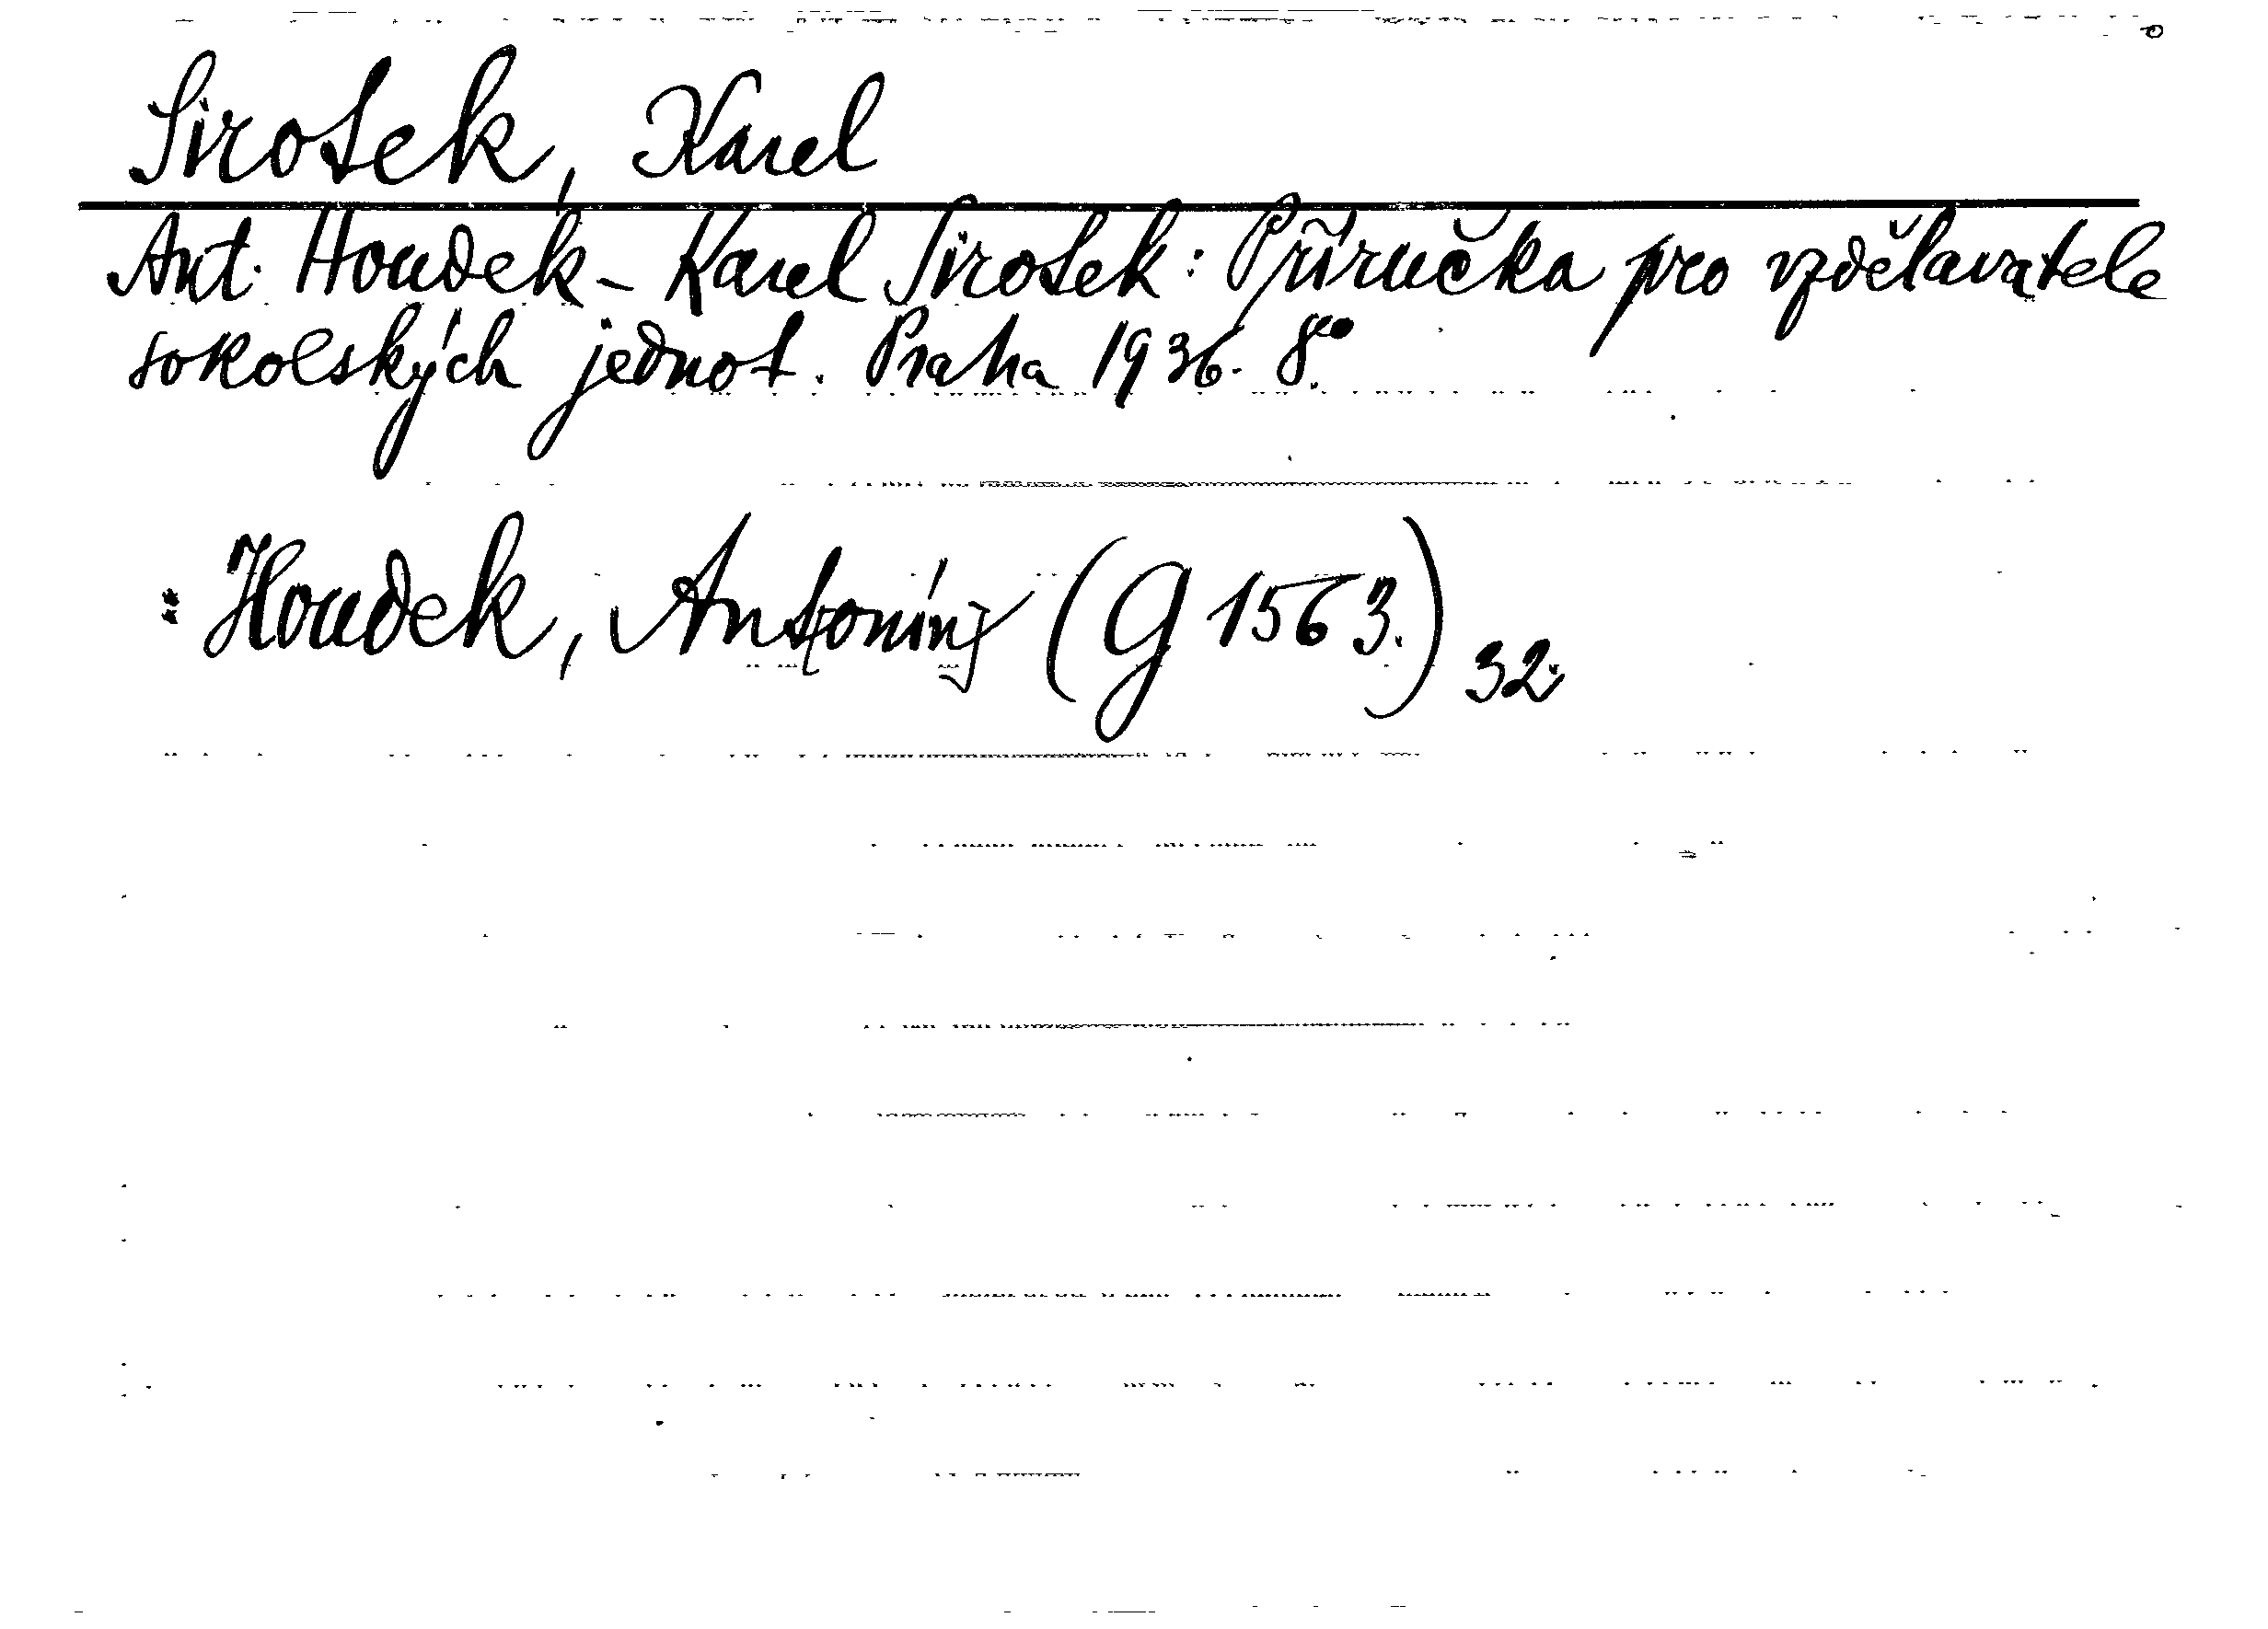 Sirotek, Karel
Ant. Houdek - Karel Sirotek: Příručka pro vzdělavatele
sokolských jednot. Praha 1936. 8°.
: Houdek, Ant[onín] (G 1563.) 32.